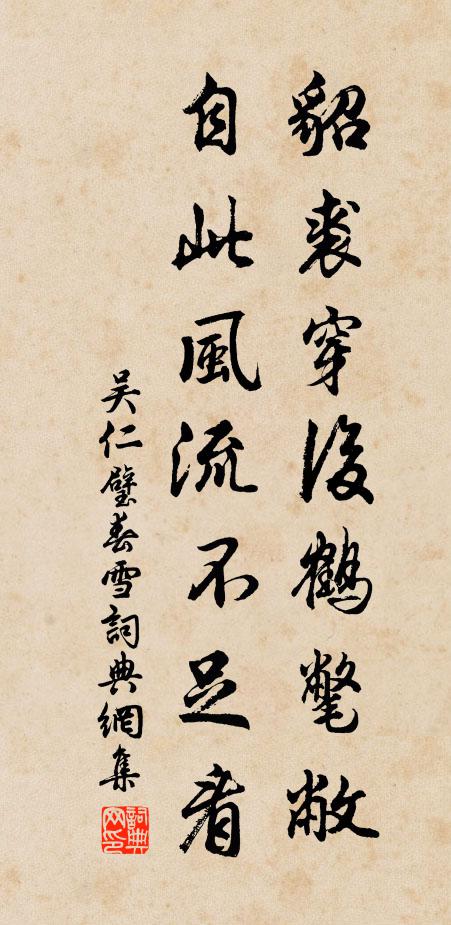 貂裘穿後鶴氅敝
自此風流不足看
吳仁璧春雪詞典網集
詞典網印